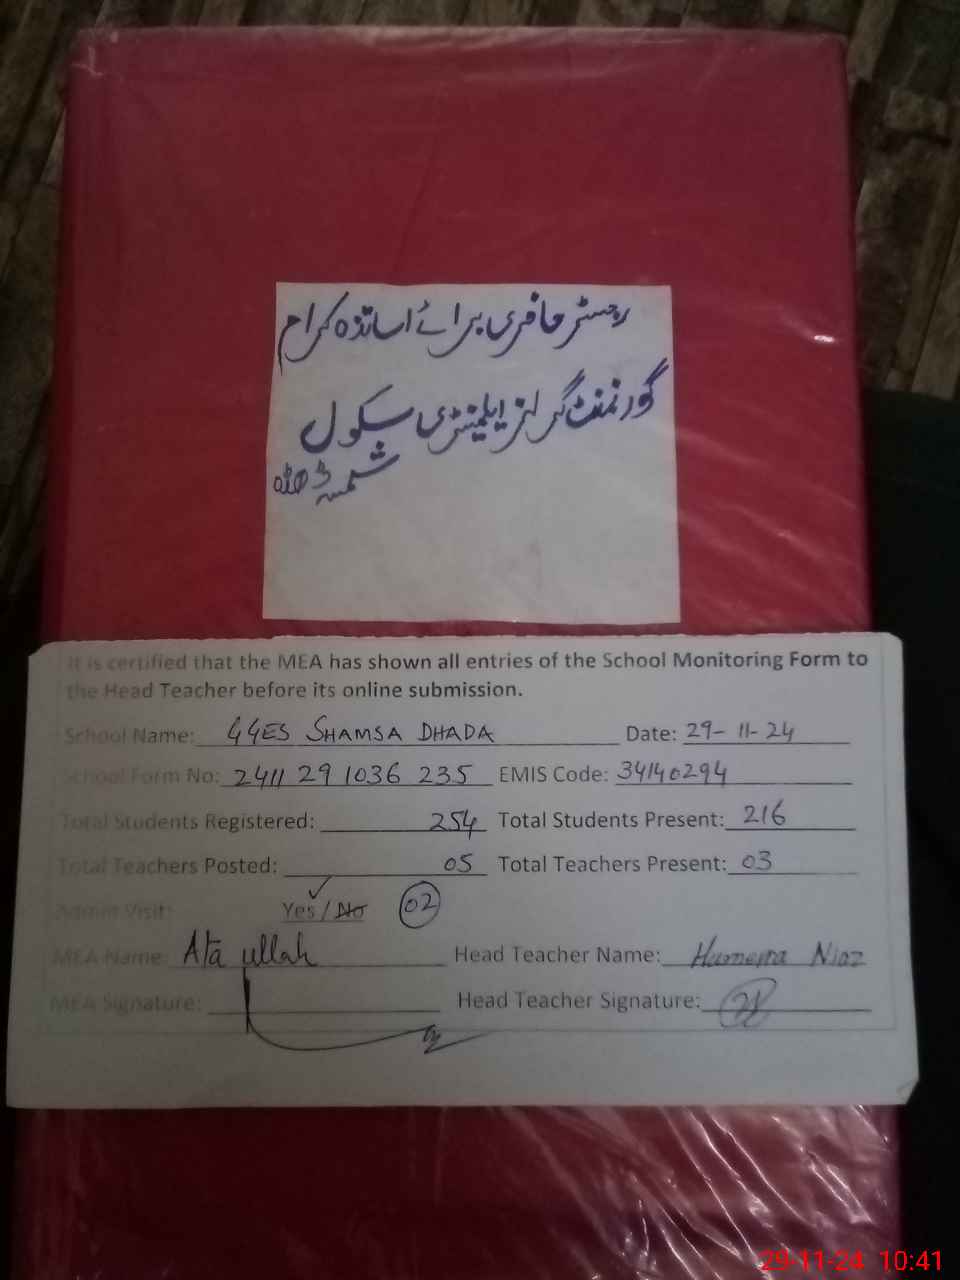 رجسٹر حاضری برائے اساتذہ کرام
گورنمنٹ گرلز ایلیمنٹری سکول
شمسہ ڈھڈہ
It is certified that the MEA has shown all entries of the School Monitoring Form to
the Head Teacher before its online submission.
School Name: GGES SHAMSA DHADA Date: 29-11-24
School Form No: 2411 29 1036 235 EMIS Code: 34140294
Total Students Registered: 254 Total Students Present: 216
Total Teachers Posted: 05 Total Teachers Present: 03
Admin Visit: Yes / No 02
MEA Name: Ata ullah Head Teacher Name: Humera Niaz
MEA Signature: Head Teacher Signature:
29-11-24 10:41